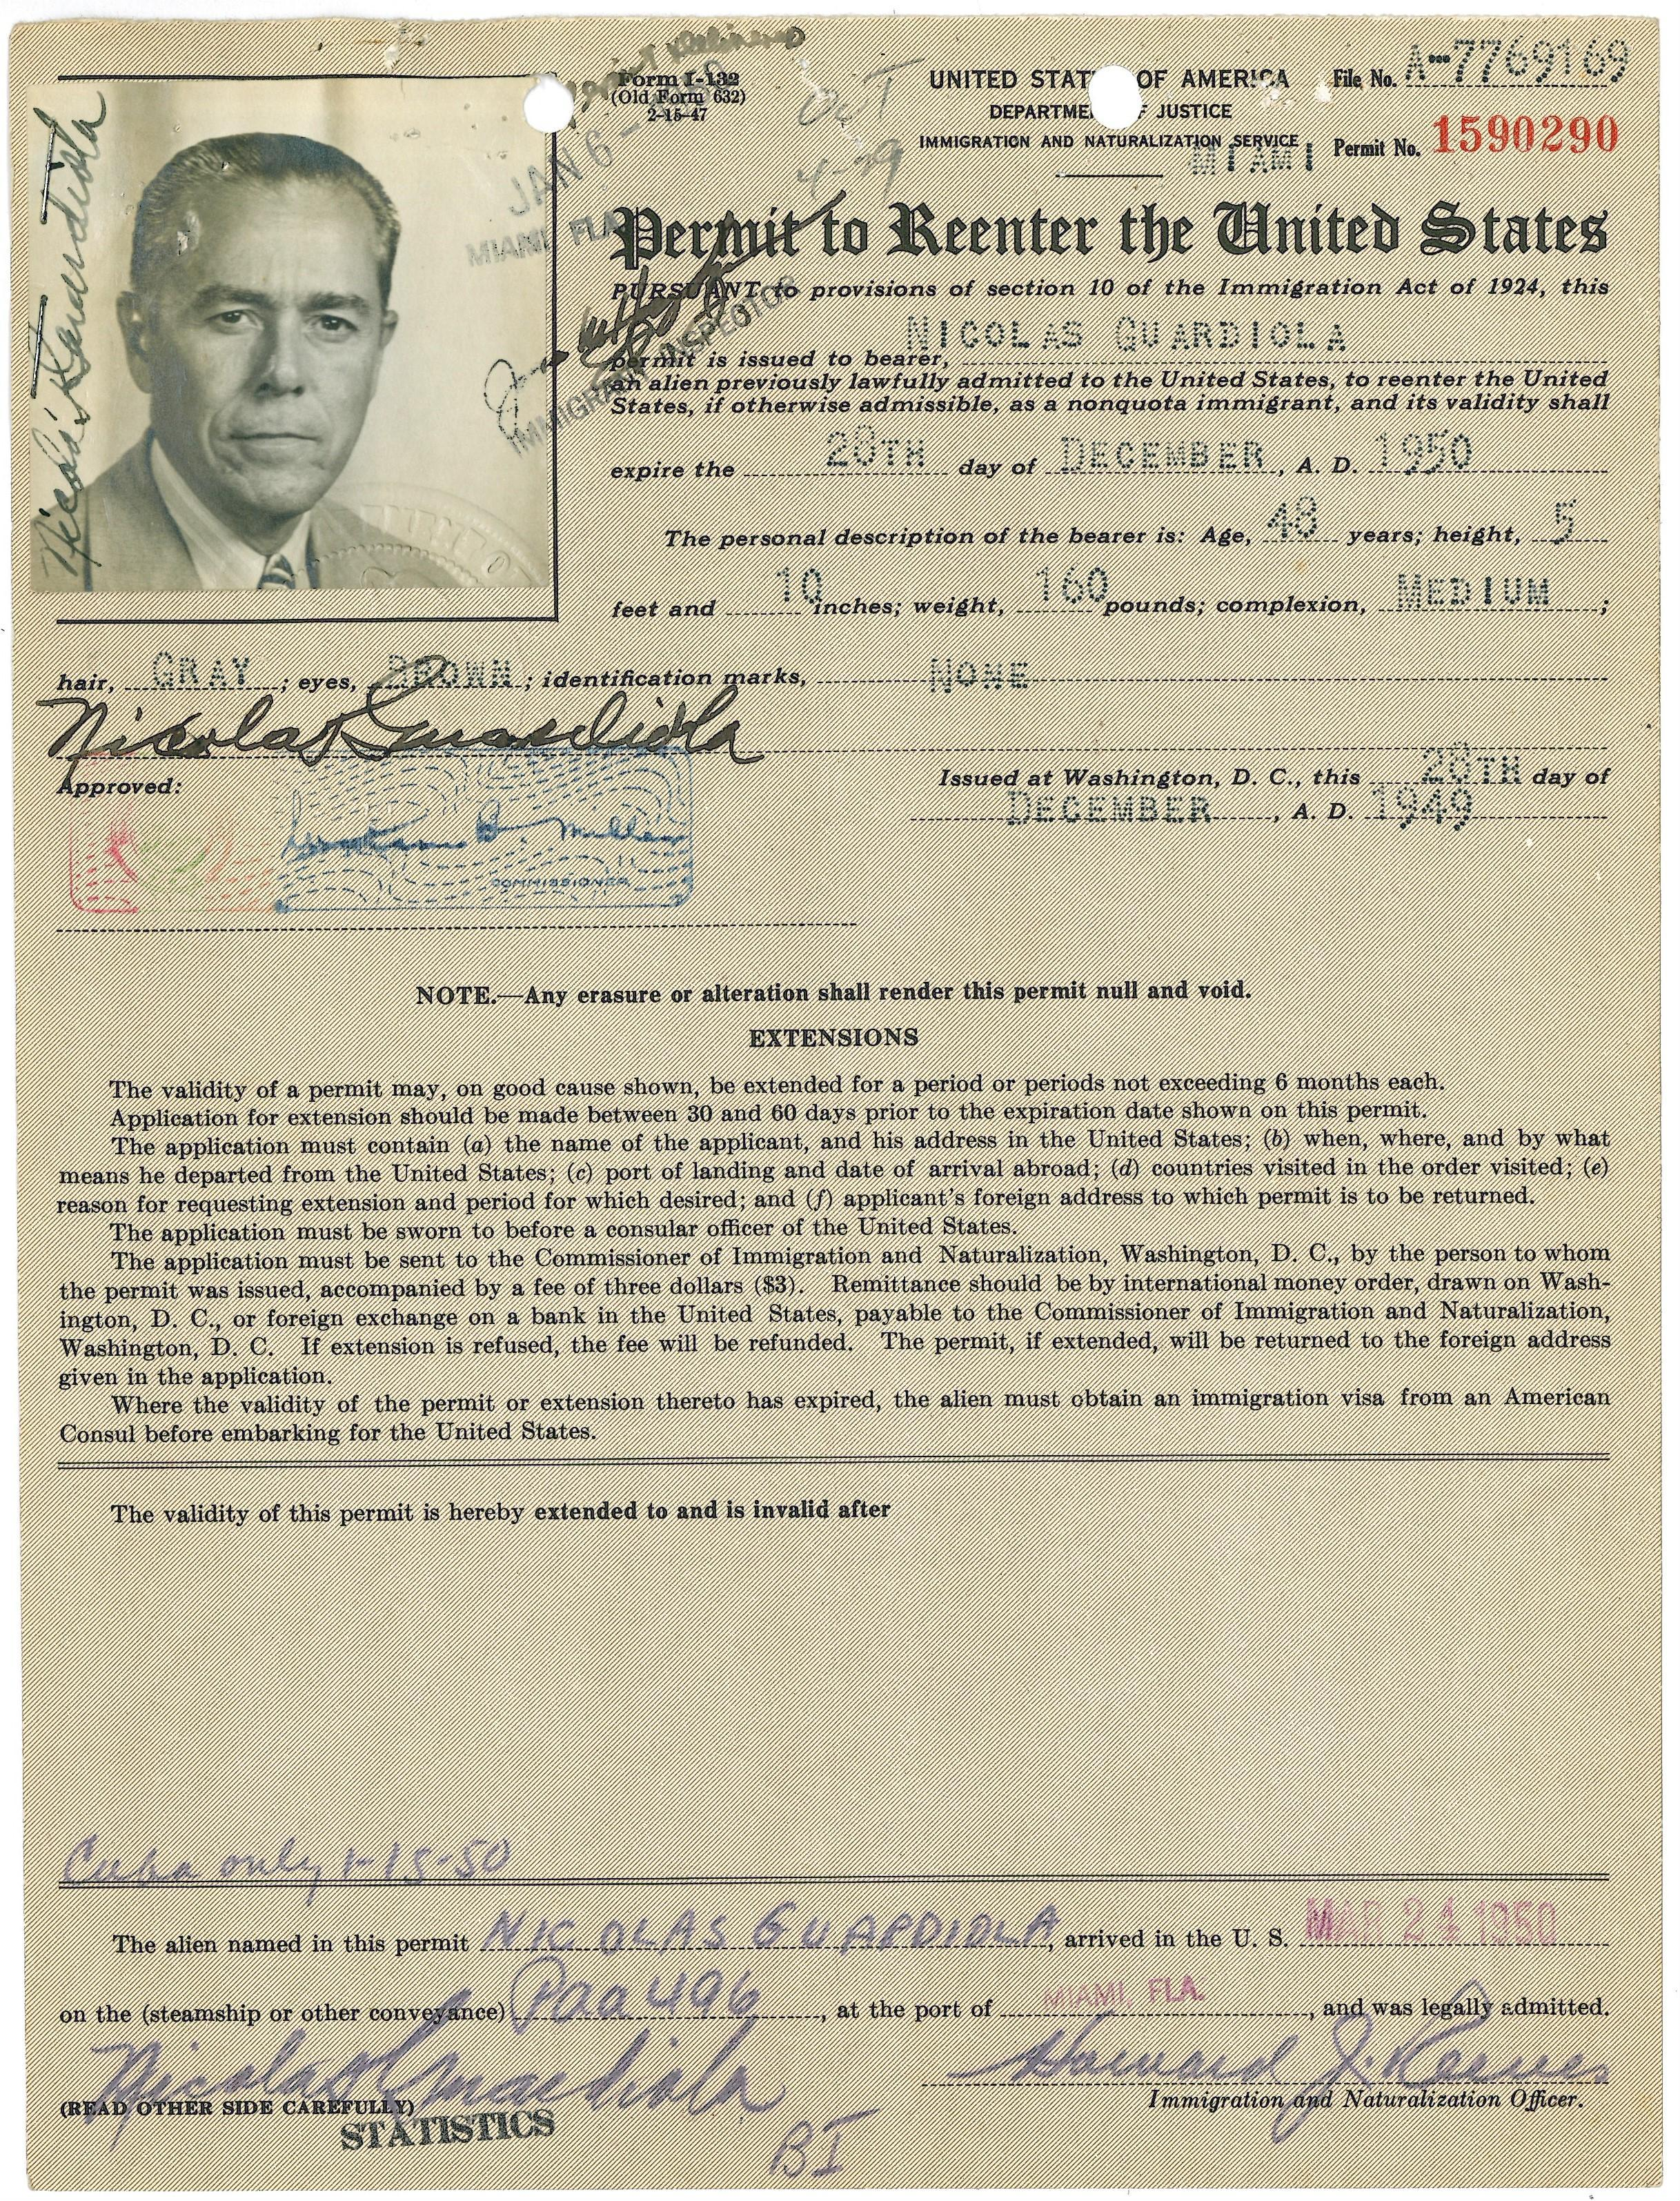 Form I-132
(Old Form 632)
2-15-47
UNITED STAT OF AMERICA
DEPARTME F JUSTICE
IMMIGRATION AND NATURALIZATION SERVICE
MIAMI
File No. A-7769169
Permit No. 1590290
OUT
4-29
JAN 6 -
MIAMI FLA
IMMIGRANT INSPECTOR
Nicolas Guardiola
Permit to Reenter the United States
PURSUANT to provisions of section 10 of the Immigration Act of 1924, this
permit is issued to bearer, NICOLAS GUARDIOLA
an alien previously lawfully admitted to the United States, to reenter the United
States, if otherwise admissible, as a nonquota immigrant, and its validity shall
expire the 28TH day of DECEMBER, A. D. 1950
The personal description of the bearer is: Age, 48 years; height, 5
feet and 10 inches; weight, 160 pounds; complexion, MEDIUM;
hair, GRAY; eyes, BROWN; identification marks, NONE
Nicolas Guardiola
Approved:
Issued at Washington, D. C., this 28TH day of
DECEMBER, A. D. 1949
B. Miller
COMMISSIONER
NOTE.—Any erasure or alteration shall render this permit null and void.
EXTENSIONS
The validity of a permit may, on good cause shown, be extended for a period or periods not exceeding 6 months each.
Application for extension should be made between 30 and 60 days prior to the expiration date shown on this permit.
The application must contain (a) the name of the applicant, and his address in the United States; (b) when, where, and by what
means he departed from the United States; (c) port of landing and date of arrival abroad; (d) countries visited in the order visited; (e)
reason for requesting extension and period for which desired; and (f) applicant's foreign address to which permit is to be returned.
The application must be sworn to before a consular officer of the United States.
The application must be sent to the Commissioner of Immigration and Naturalization, Washington, D. C., by the person to whom
the permit was issued, accompanied by a fee of three dollars ($3). Remittance should be by international money order, drawn on Wash-
ington, D. C., or foreign exchange on a bank in the United States, payable to the Commissioner of Immigration and Naturalization,
Washington, D. C. If extension is refused, the fee will be refunded. The permit, if extended, will be returned to the foreign address
given in the application.
Where the validity of the permit or extension thereto has expired, the alien must obtain an immigration visa from an American
Consul before embarking for the United States.
The validity of this permit is hereby extended to and is invalid after
Cuba only 1-15-50
The alien named in this permit NICOLAS GUARDIOLA, arrived in the U. S. MAR 24 1950
on the (steamship or other conveyance) Paa 496, at the port of MIAMI, FLA., and was legally admitted.
Nicolas Guardiola
Howard J.
Immigration and Naturalization Officer.
(READ OTHER SIDE CAREFULLY)
STATISTICS
BI